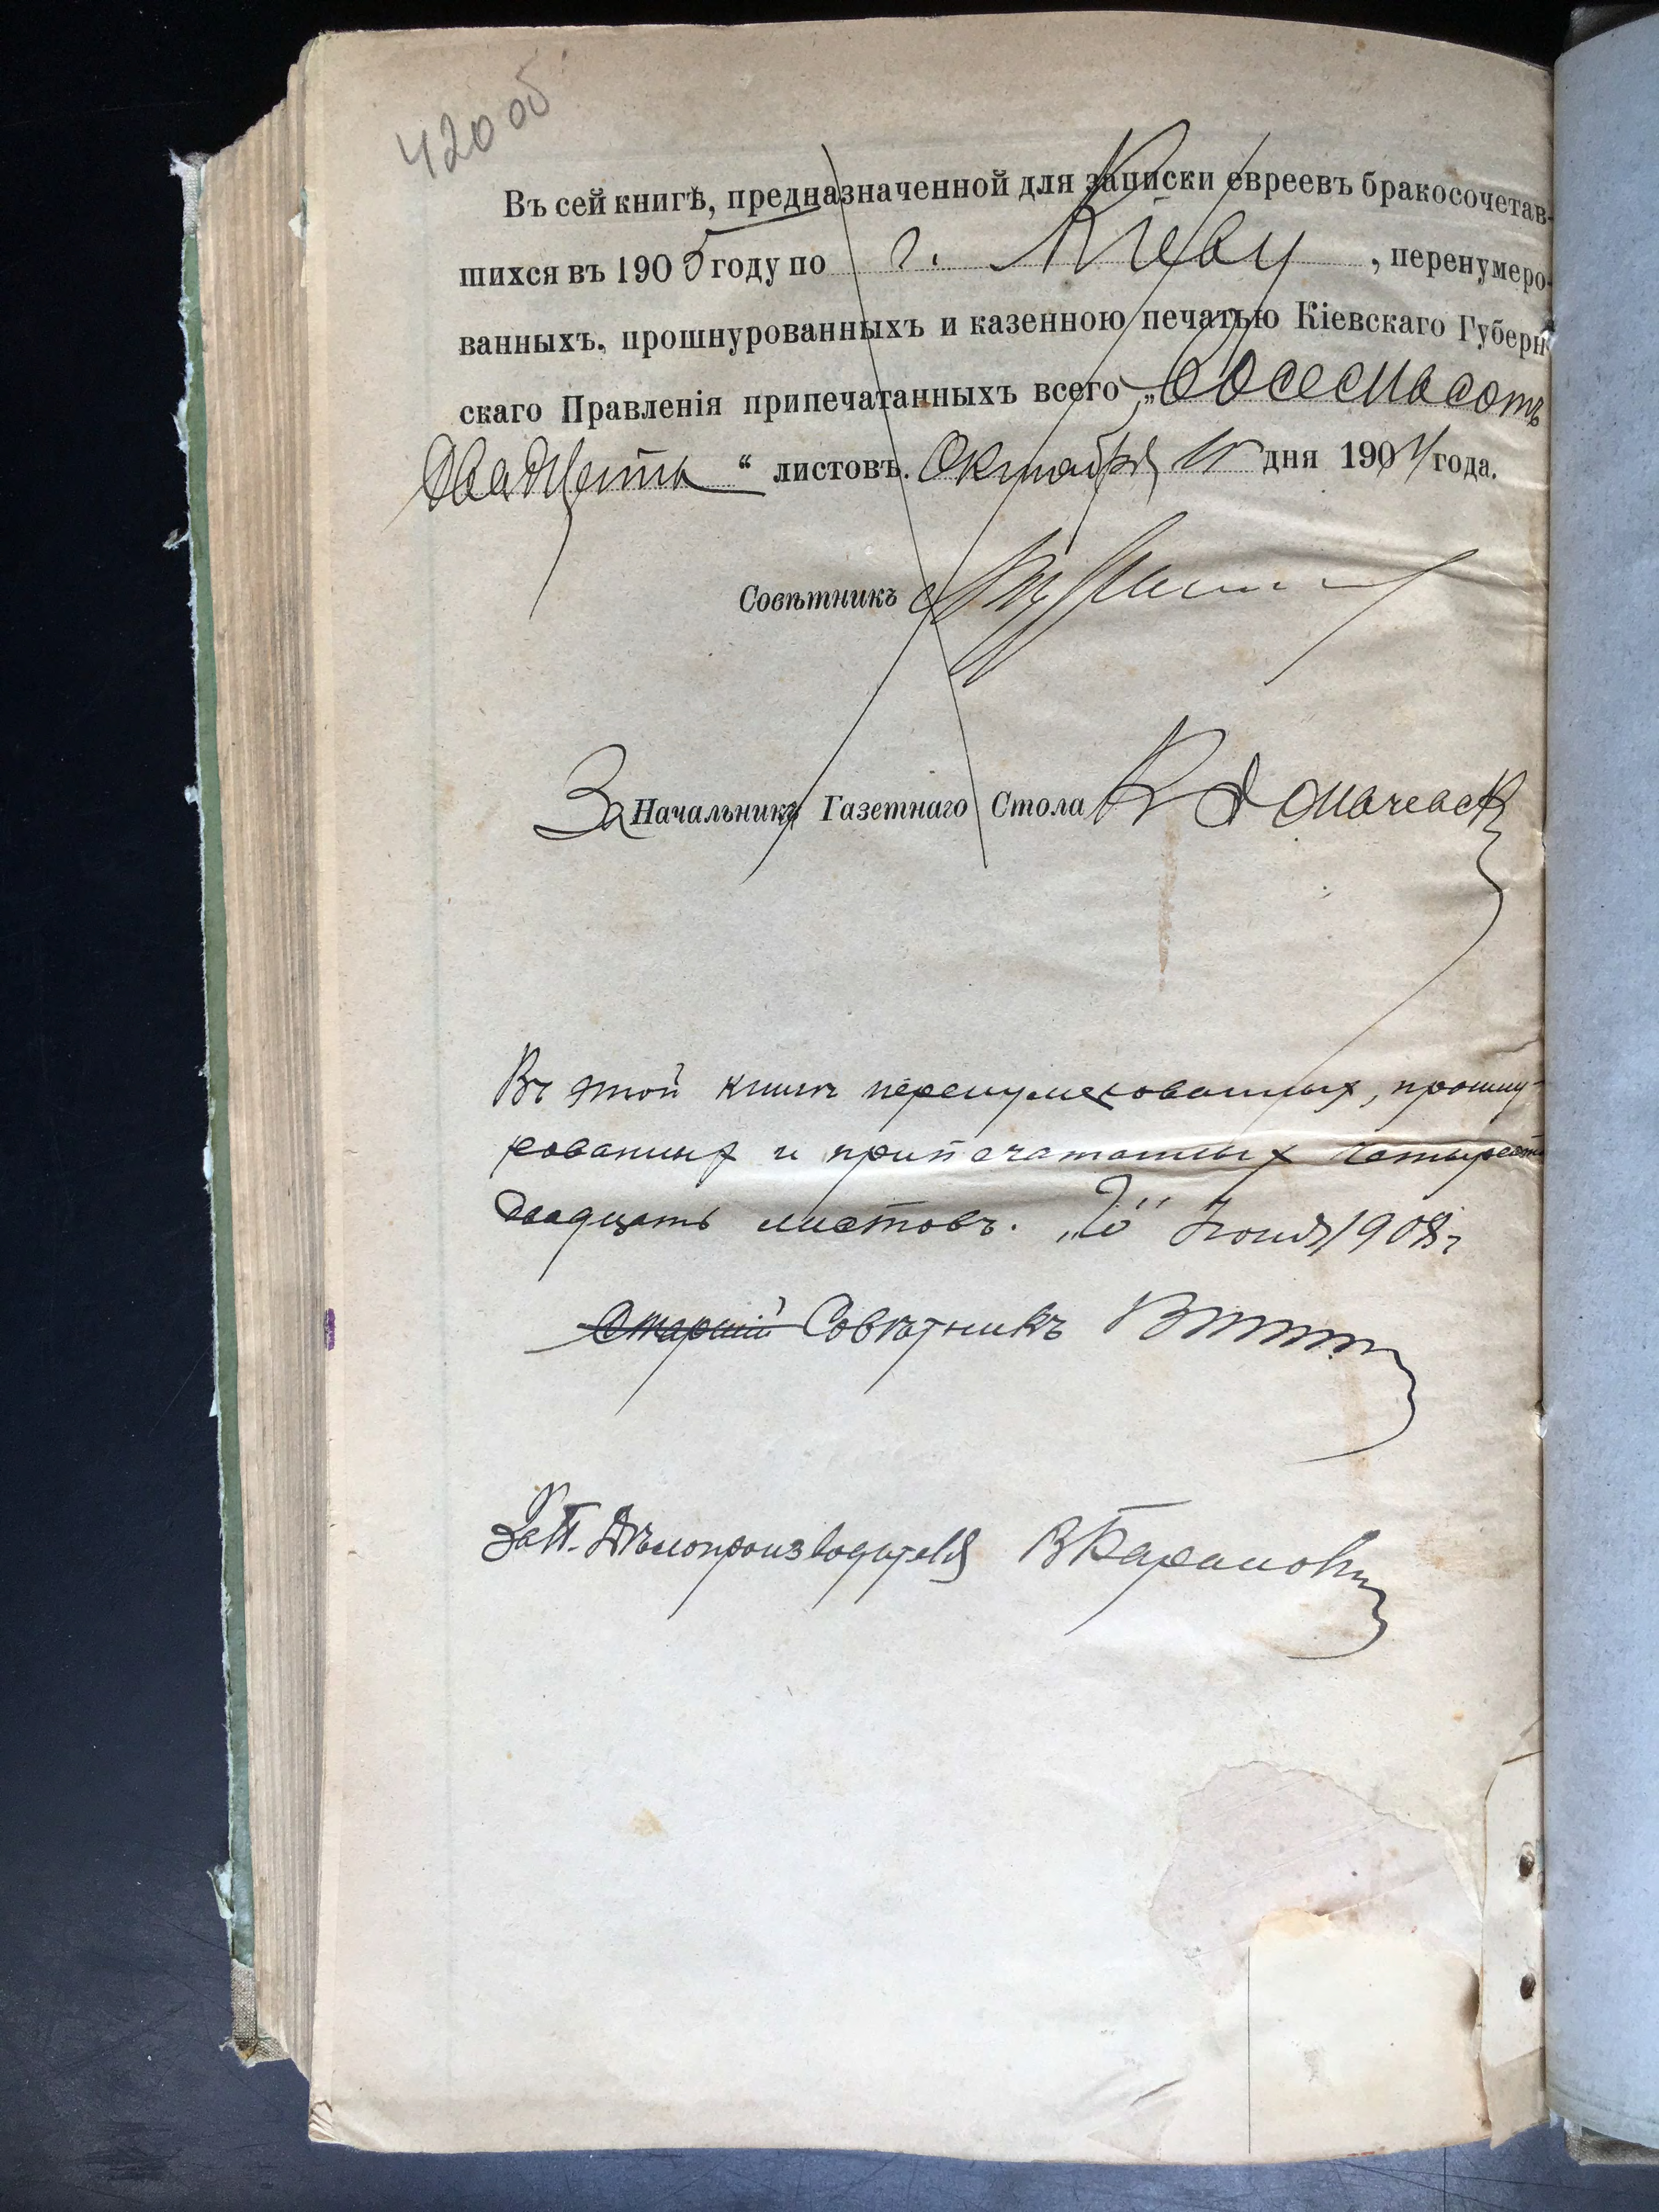 420 об
Въ сей книгѣ, предназначенной для записки евреевъ бракосочетав-
шихся въ 1905 году по г. Кіеву, перенумеро-
ванныхъ, прошнурованныхъ и казенною печатью Кіевскаго Губерн-
скаго Правленія припечатанныхъ всего „восемьсотъ
двадцать“ листовъ. Октября дня 1904 года.
Совѣтникъ
За Начальника Газетнаго Стола К
Въ этой книгѣ перенумерованных, прошну-
рованных и припечатанных четыреста
двадцать листовъ. 1908 г
Старшій Совѣтникъ
Дѣлопроизводителя